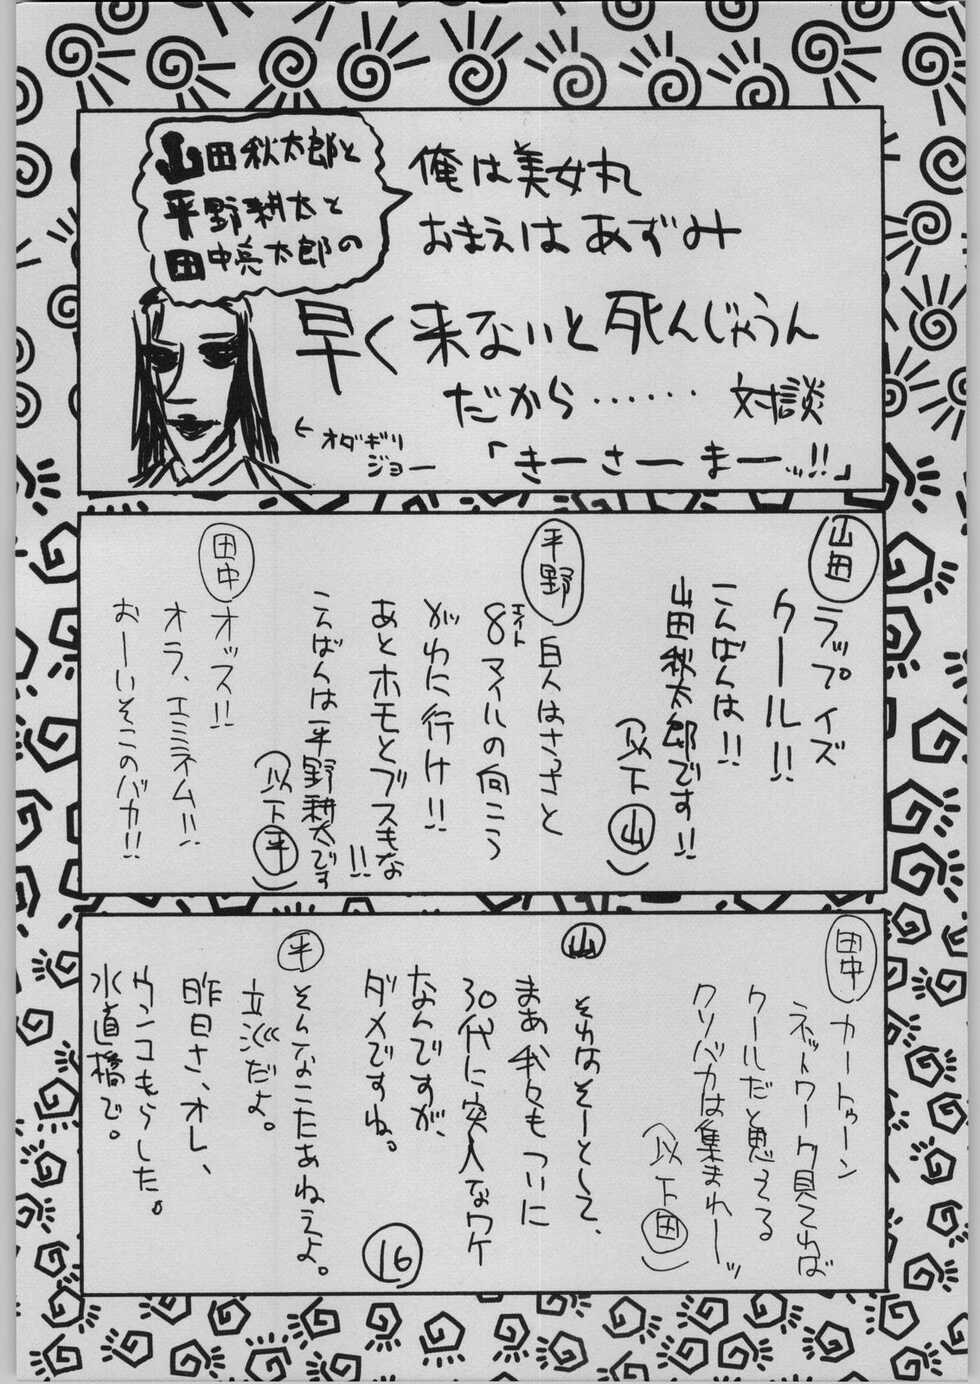 山田秋太郎と
平野耕太と
田中亮太郎の
俺は美女丸
おまえはあずみ
早く来ないと死んじゃうん
だから……対談
「きーさーまーッ!!」
←オダギリ
ジョー
山田
ラップイズ
クール!!
こんばんは!!
山田秋太郎です!!
(以下山)
平野
白人はさっさと
8マイルの向こう
エイト
がわに行け!!
あとホモとブスもな!!
こんばんは平野耕太です
(以下平)
田中
オッス!!
オラ、エミネム!!
おーいそこのバカ!!
田中
カートゥーン
ネットワーク見てれば
クールだと思ってる
クソバカは集まれーッ
(以下田)
山
それはそーとして、
まあ我々もついに
30代に突入なワケ
なんですが、
ダメですね。
平
そんなこたあねぇよ。
立派だよ。
昨日さ、オレ、
ウンコもらした。
水道橋で。
16